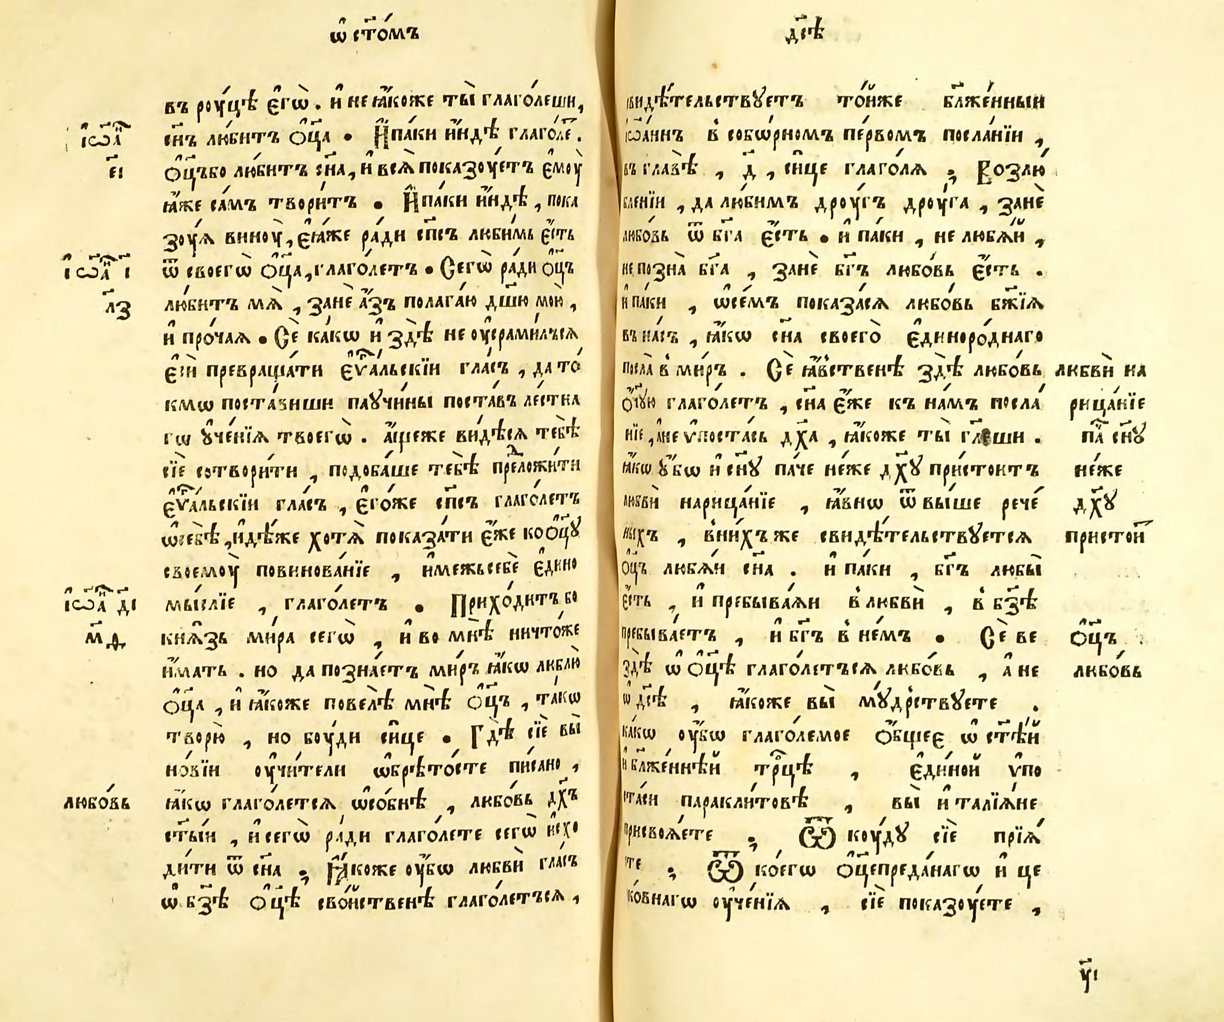 ѡ҆ ст҃о́мъ
въ рꙋ́цѣ є҆гѡ̀ . и҆ не ꙗ҆́коже ты̀ глаго́леши,
і҆ѡа҃
сн҃ъ лю́битъ ѻ҆ц҃а̀ . И҆ па́ки и҆́ндѣ глаго́ле .
є҃і
Ѻ҆ц҃ъ бо лю́битъ сн҃а, и҆ всѧ̑ показꙋ́етъ є҆мꙋ̀
ꙗ҆̀же са́мъ твори́тъ . И҆ па́ки и҆́ндѣ , пока
зꙋ́ѧ винꙋ̀, є҆ѧ́же ра́ди сп҃съ люби́мь є҆́сть
і҆ѡа҃ і҃
ѿ своегѡ̀ ѻ҆ц҃а̀, глаго́летъ . Сегѡ̀ ра́ди ѻ҆ц҃ъ
л҃з
лю́битъ мѧ̀ , занѐ а҆́зъ полага́ю дш҃ю мою̀ ,
и҆ про́чаѧ . Сѐ ка́кѡ и҆ здѣ̀ не ᲂу҆срами́лъсѧ
є҆сѝ превраща́ти є҆ѵⷢ҇а́льскїи гла́съ , да то́
кмѡ поста́виши паꙋчи́ны поста́въ ле́стна
гѡ ᲂу҆че́нїѧ твоегѡ̀ . а҆́ще же ви́дѣсѧ тебѣ̀
сїѐ сотвори́ти , подоба́ше тебѣ̀ преложи́ти
є҆ѵⷢ҇а́льскїи гла́съ , є҆го́же сп҃съ глаго́летъ
ѡ҆себѣ̀, и҆дѣ́же хотѧ̀ показа́ти є҆́же ко ѻ҆ц҃ꙋ̀
своемꙋ̀ повинова́нїе , и҆ межь себѐ є҆ди́но
і҆ѡа҃ д҃і
мы́слїе , глаго́летъ . Прихо́дитъ бо
м҃д
кнѧ́зь ми́ра сегѡ̀ , и҆ во мнѣ̀ ничто́же
и҆́мать . но да позна́етъ ми́ръ ꙗ҆́кѡ люблю̀
Ѻ҆ц҃а̀ , и҆ ꙗ҆́коже повелѣ̀ мнѣ̀ ѻ҆ц҃ъ , та́кѡ
творю̀ , но бꙋ́ди си́це . Гдѣ̀ сїѐ вы̀
но́вїи ᲂу҆чи́тели ѡ҆брѣ́тосте пи́сано ,
любо́вь
ꙗ҆́кѡ глаго́летсѧ ѡ҆со́бнѣ , любо́вь дх҃ъ
ст҃ы́и , и҆ сегѡ̀ ра́ди глаго́лете сегѡ̀ и҆схо
ди́ти ѿ сн҃а ; Ꙗ҆́коже ᲂу҆́бѡ любвѝ гла́съ
ѡ҆ бз҃ѣ ѻ҆ц҃ѣ̀ сво́йственѣ глаго́летъсѧ ,
дс҃ѣ
свидѣ́тельствꙋетъ то́йже бл҃же́нный
і҆ѡа́ннъ в собѡ́рномъ пе́рвомъ посла́нїи ,
въ главѣ̀ , д҃ , си́це глаго́лѧ ; Возлю́
бленїи , да лю́бимъ дрꙋ́гъ дрꙋ́га , занѐ
любо́вь ѿ бг҃а є҆́сть . и҆ па́ки , не любѧ́й ,
не позна̀ бг҃а , занѐ бг҃ъ любо́вь є҆́сть .
и҆ па́ки , ѡ҆се́мъ показа́сѧ любо́вь бж҃їѧ
въ на́съ , ꙗ҆́кѡ сн҃а своего̀ є҆диноро́днаго
посла̀ в ми́ръ . Сѐ ꙗ҆́вственѣ здѣ̀ любо́вь
любвѝ на
ѻ҆́ч҃ꙋю глаго́летъ , сн҃а є҆́же къ на́мъ посла́
рица́нїе
нїе , а҆ не ѵ҆поста́сь дх҃а , ꙗ҆́коже ты̀ гл҃еши .
па́ сн҃ꙋ
ꙗ҆́кѡ ᲂу҆́бѡ и҆ сн҃ꙋ па́че не́же дх҃ꙋ присто́итъ
не́же
любвѝ нарица́нїе , ꙗ҆́внѡ ѿ вы́ше рече́
дх҃ꙋ
нныхъ , в ни́хъже свидѣ́тельствꙋетсѧ
присто́й
Ѻ҆ц҃ъ любѧ́й сн҃а . и҆ па́ки , бг҃ъ любы̀
є҆́сть , и҆ пребыва́ѧй в любвѝ , в бз҃ѣ
пребыва́етъ , и҆ бг҃ъ в не́мъ . Сѐ ве
Ѻ҆ц҃ъ
здѣ̀ ѡ҆ ѻ҆ц҃ѣ̀ глаго́летъсѧ любо́вь , а҆ не
любо́вь
ѡ҆ дс҃ѣ , ꙗ҆́коже вы̀ мꙋ́дрствꙋете .
ка́кѡ ᲂу҆́бѡ глаго́лемое ѻ҆́бщее ѡ҆ ст҃ѣ́й
и҆ бл҃же́ннѣй трⷪ҇цѣ , є҆ди́ной ѵ҆по
ста́си паракли́товѣ , вы̀ и҆талїѧ́не
присвоѧ́ете ; Ѿ кꙋ́дꙋ сїѐ прїѧ́
сте ; Ѿ ко́егѡ ѻ҆ц҃епреда́нагѡ и҆ це
ко́внагѡ ᲂу҆че́нїѧ , сїѐ показꙋ́ете ,
у҃і